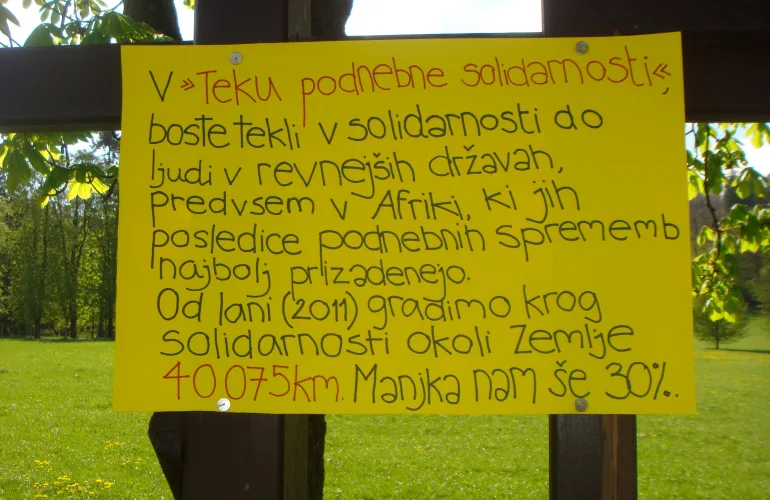 V »Teku podnebne solidarnosti«,
boste tekli v solidarnosti do
ljudi v revnejših državah,
predvsem v Afriki, ki jih
posledice podnebnih sprememb
najbolj prizadenejo.
Od lani (2011) gradimo krog
solidarnosti okoli Zemlje
40 075km. Manjka nam še 30%.